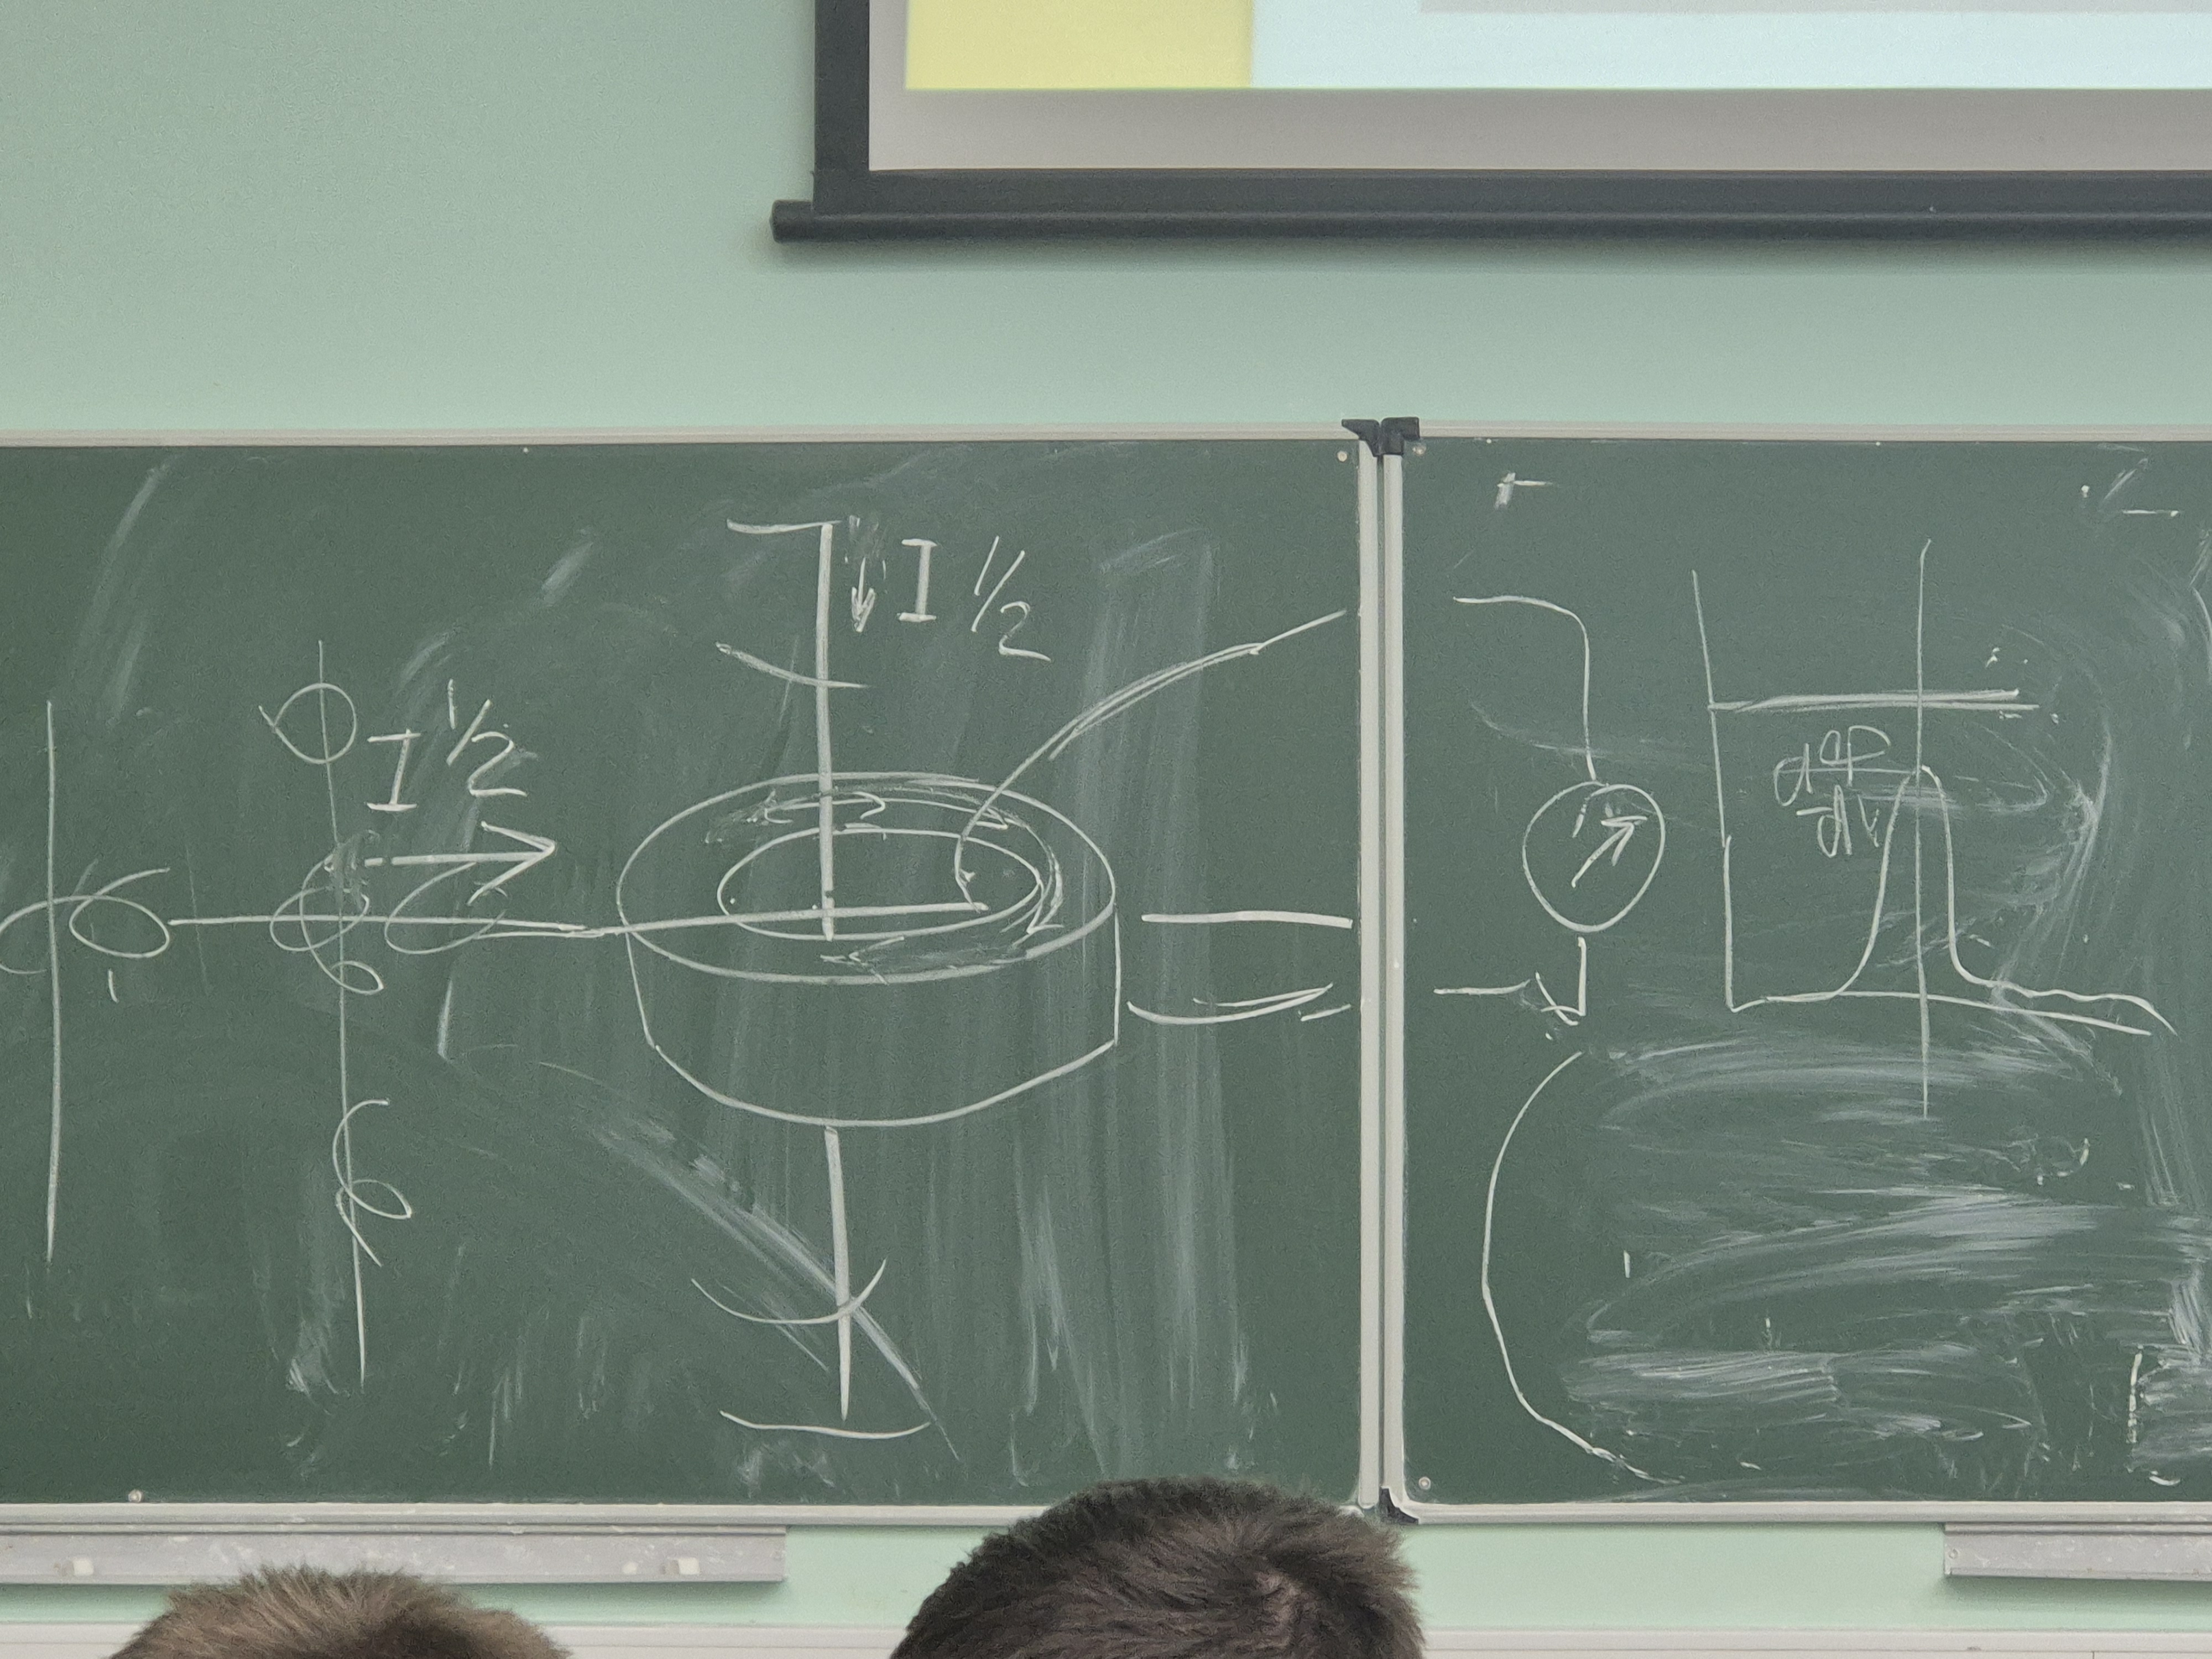 I 1/2
I 1/2
dφ
dt